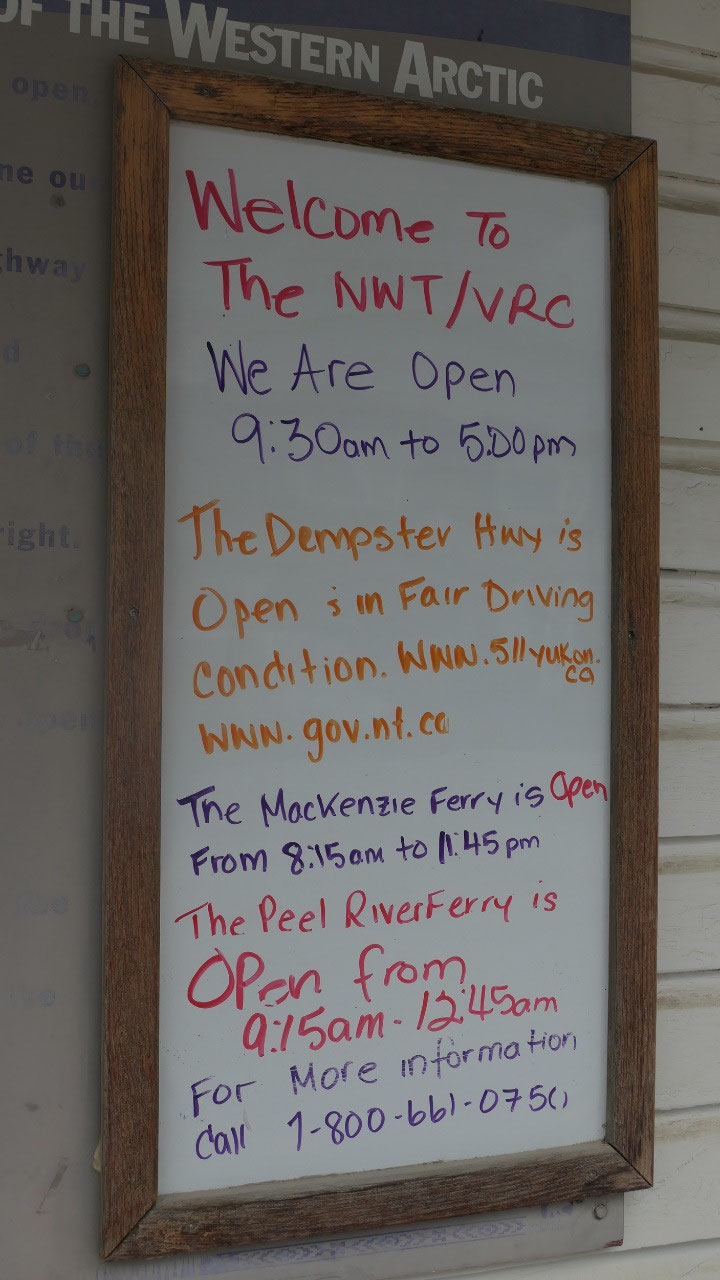 OF THE WESTERN ARCTIC
open.
hway
of the
right.
Welcome To
The NWT/VRC
We Are Open
9:30am to 5:00pm
The Dempster Hwy is
Open is in Fair Driving
Condition. WWW.511yukon.
ca
WWW.gov.nt.ca
The Mackenzie Ferry is Open
From 8:15am to 11:45pm
The Peel River Ferry is
Open from
9:15am-12:45am
For More information
Call 1-800-661-0750